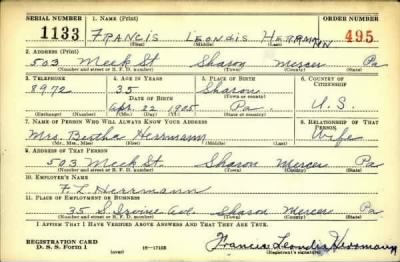 SERIAL NUMBER 1. NAME (Print) ORDER NUMBER
1133 FRANCIS LEONDIS HERRMANN 495
(First) (Middle) (Last)
2. ADDRESS (Print)
503 Meek St. Sharon Mercer Pa
(Number and street or R. F. D. number) (Town) (County) (State)
3. TELEPHONE 4. AGE IN YEARS 5. PLACE OF BIRTH 6. COUNTRY OF CITIZENSHIP
8972 35 Sharon
DATE OF BIRTH (Town or county)
Apr. 22 1905 Pa. U.S.
(Mo.) (Day) (Yr.) (State or country)
7. NAME OF PERSON WHO WILL ALWAYS KNOW YOUR ADDRESS 8. RELATIONSHIP OF THAT PERSON
Mrs. Bertha Herrmann Wife
(Mr., Mrs., Miss) (First) (Middle) (Last)
9. ADDRESS OF THAT PERSON
503 Meek St. Sharon Mercer Pa
(Number and street or R. F. D. number) (Town) (County) (State)
10. EMPLOYER'S NAME
F. L. Herrmann
11. PLACE OF EMPLOYMENT OR BUSINESS
35 S. Irvine Ave. Sharon Mercer Pa
(Number and street or R. F. D. number) (Town) (County) (State)
I AFFIRM THAT I HAVE VERIFIED ABOVE ANSWERS AND THAT THEY ARE TRUE.
REGISTRATION CARD
D. S. S. Form 1 (over) 16—17105 Francis Leondis Herrmann
(Registrant's signature)